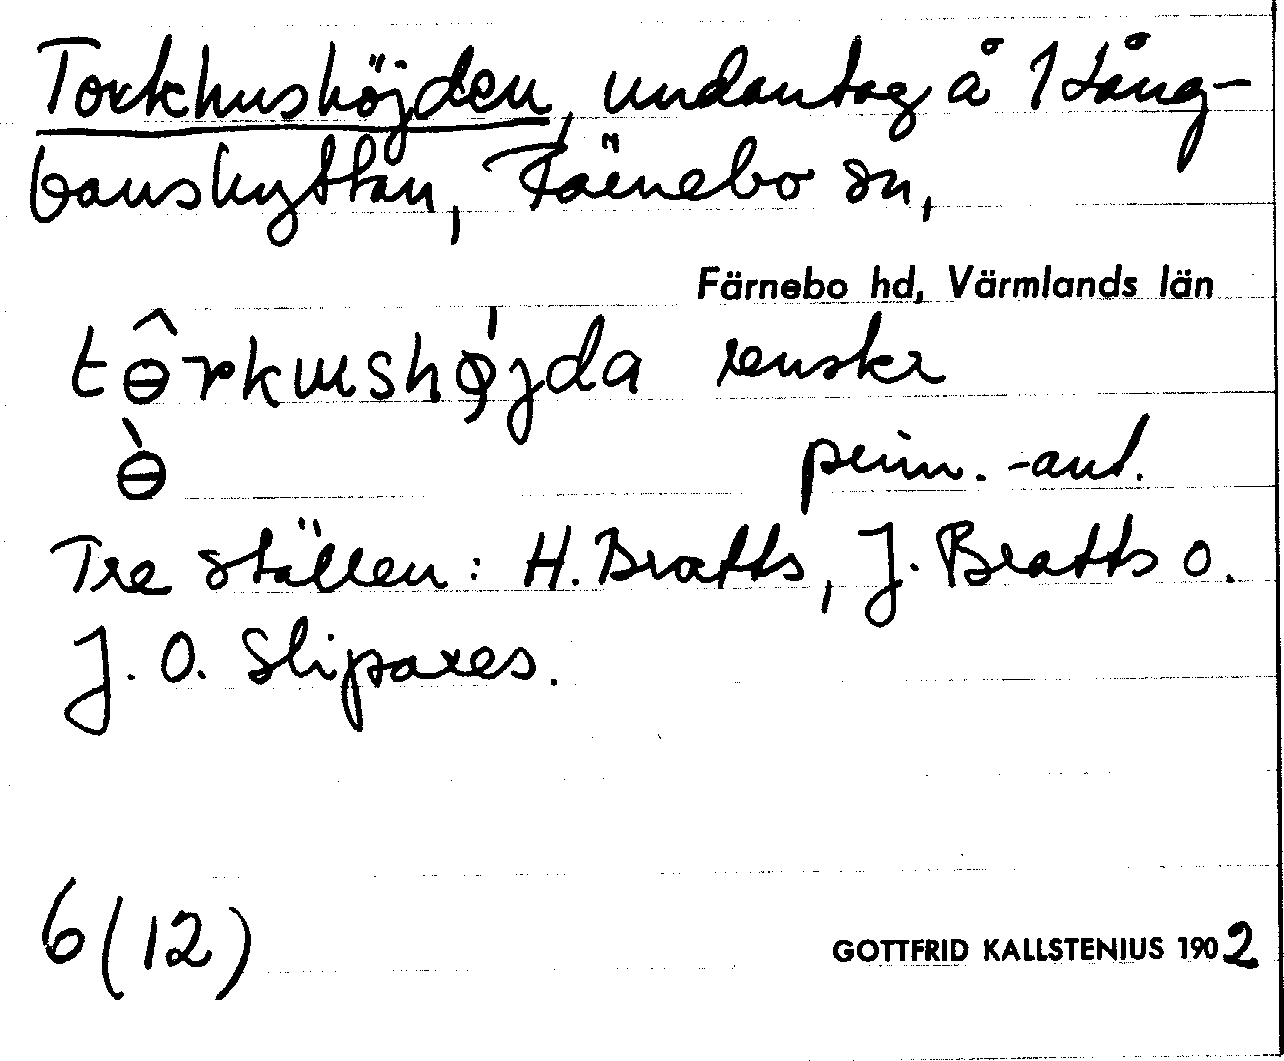 Torkhushöjden, undantag å 1 Lång-
banshyttan, Färnebo sn,
Färnebo hd, Värmlands län
tɵ̂rkɯshǿjda renskr
ɵ̀ prim.-ant.
Tre ställen: H. Bratts, J. Bratts o.
J. O. Slipares.
6 (12)
GOTTFRID KALLSTENIUS 1902